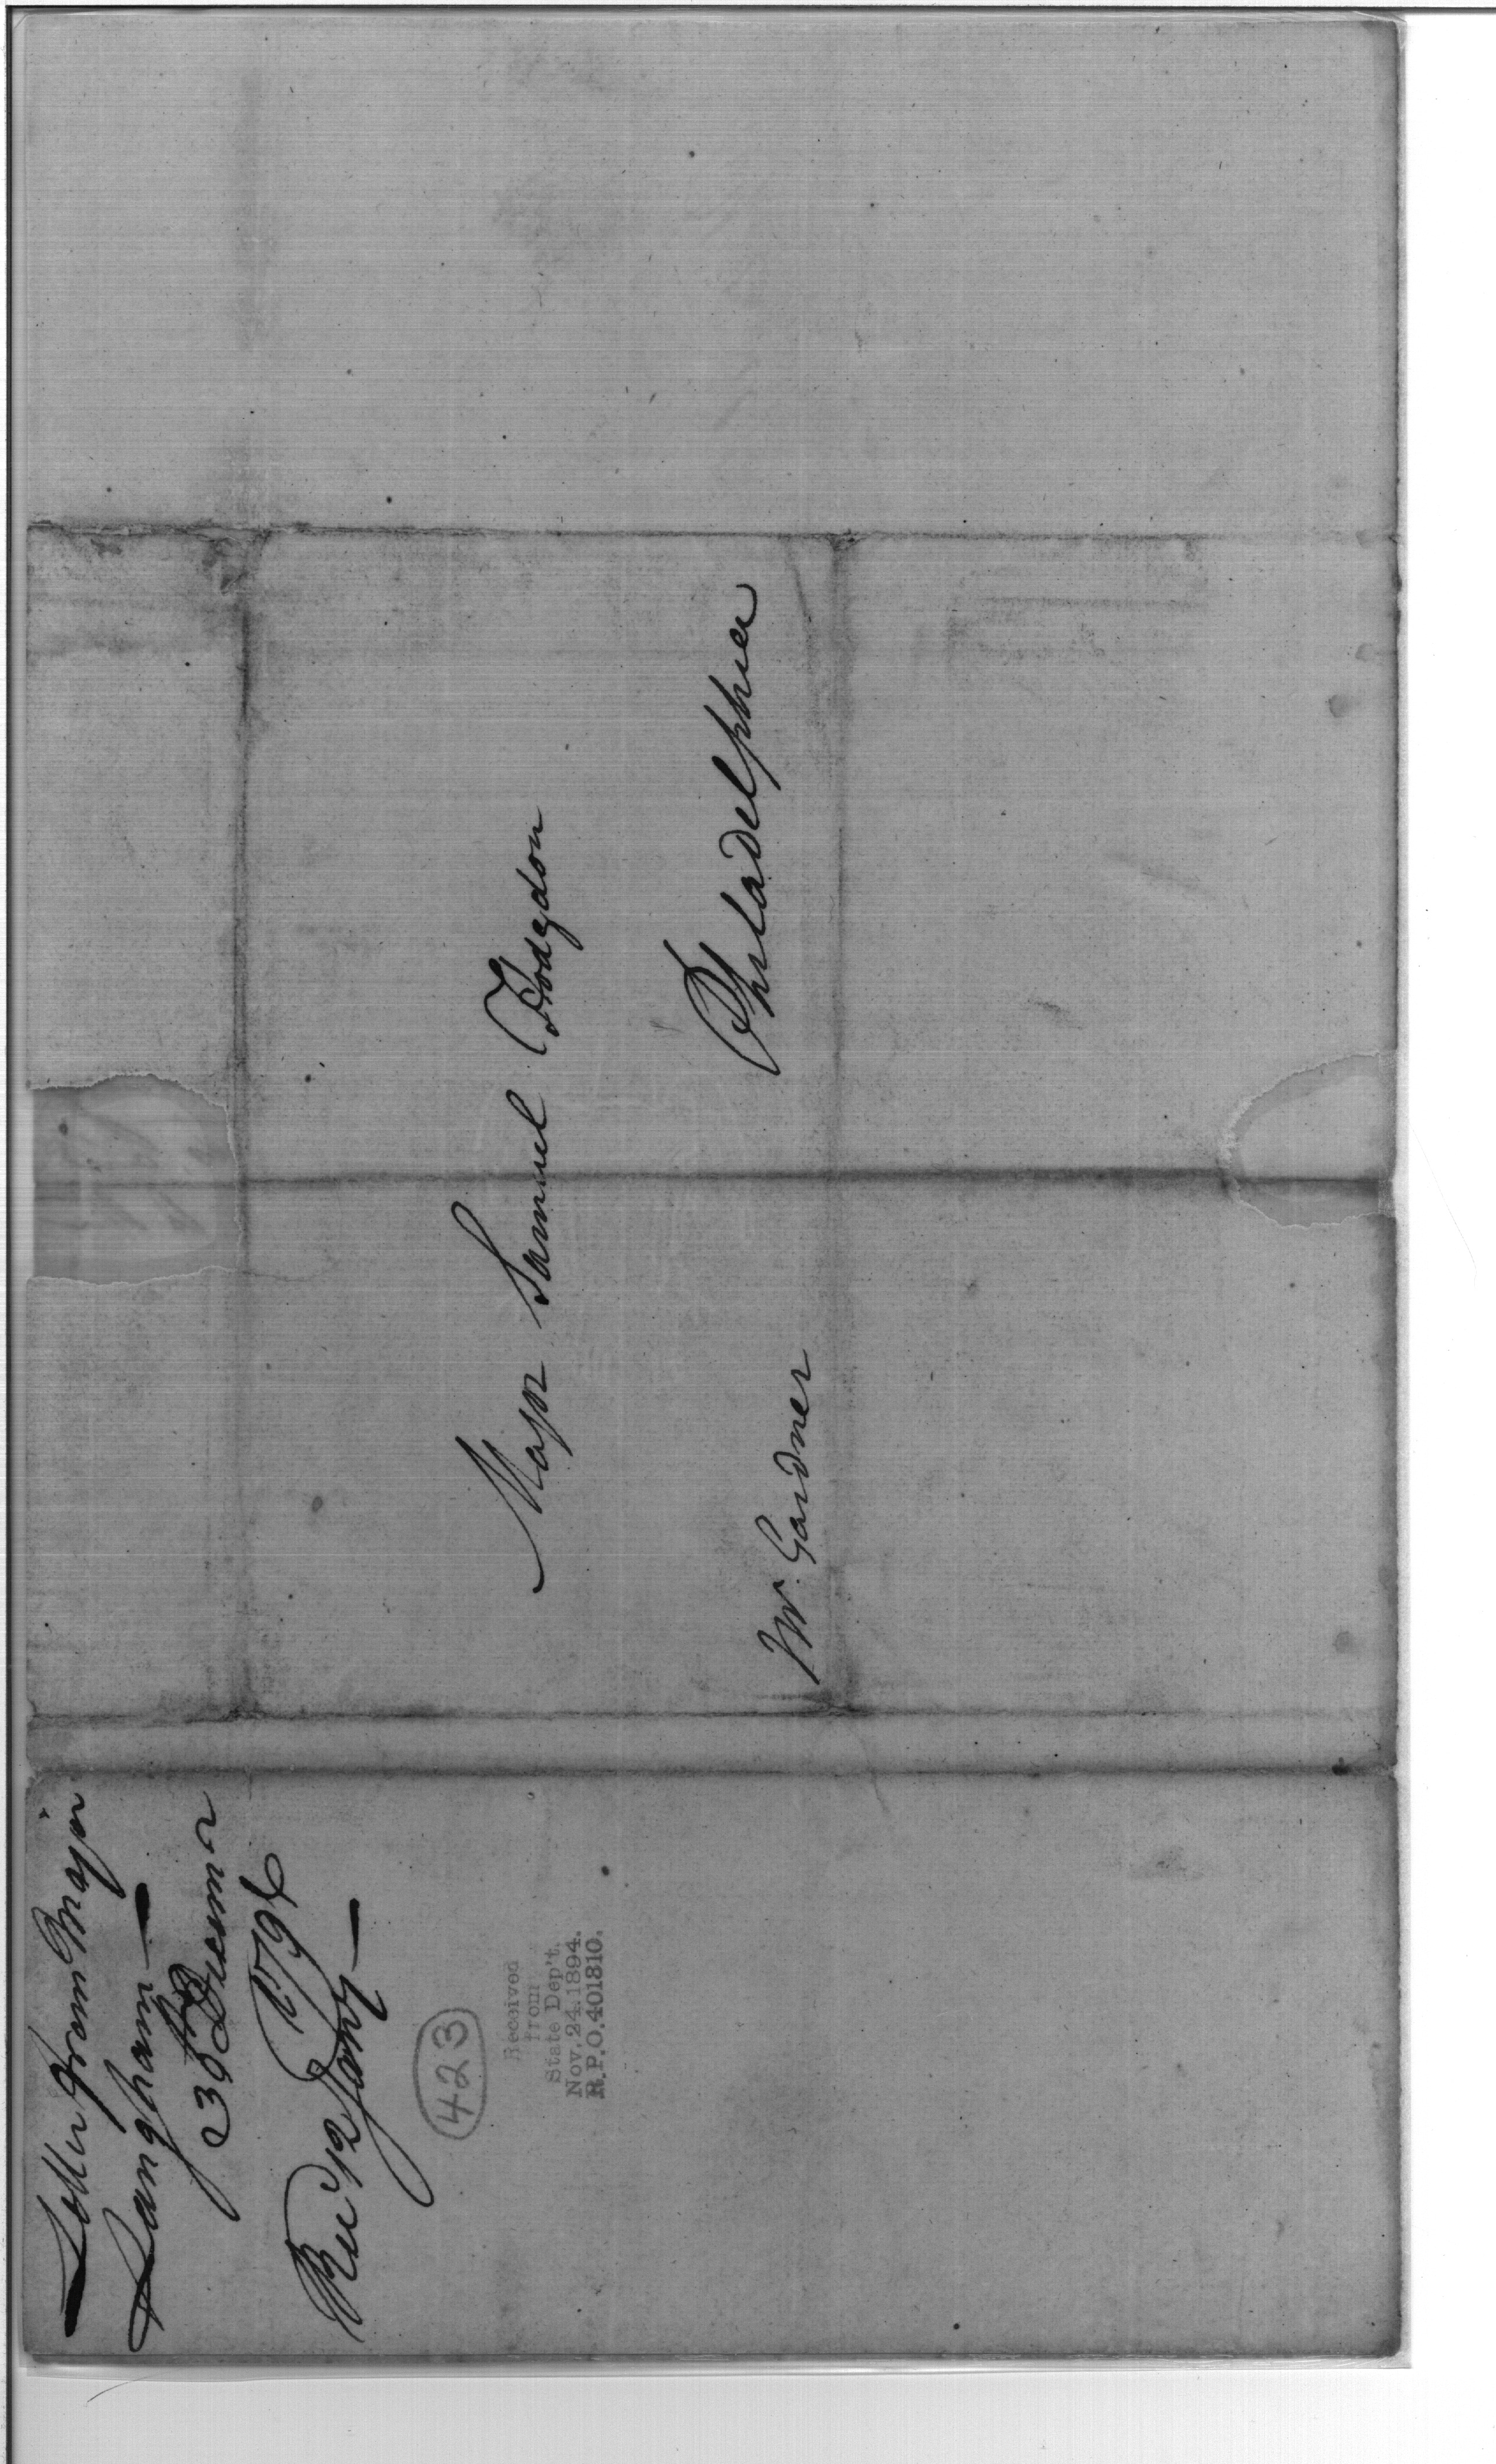 Majr Samuel Hodgdon
Philadelphia
Mr. Gardner
Letter from Major
Langham—
23d Decemr
1796
Rec 12 Jany—
423
Received
from
State Dep't.
Nov. 24. 1894.
R.P.O. 401810.